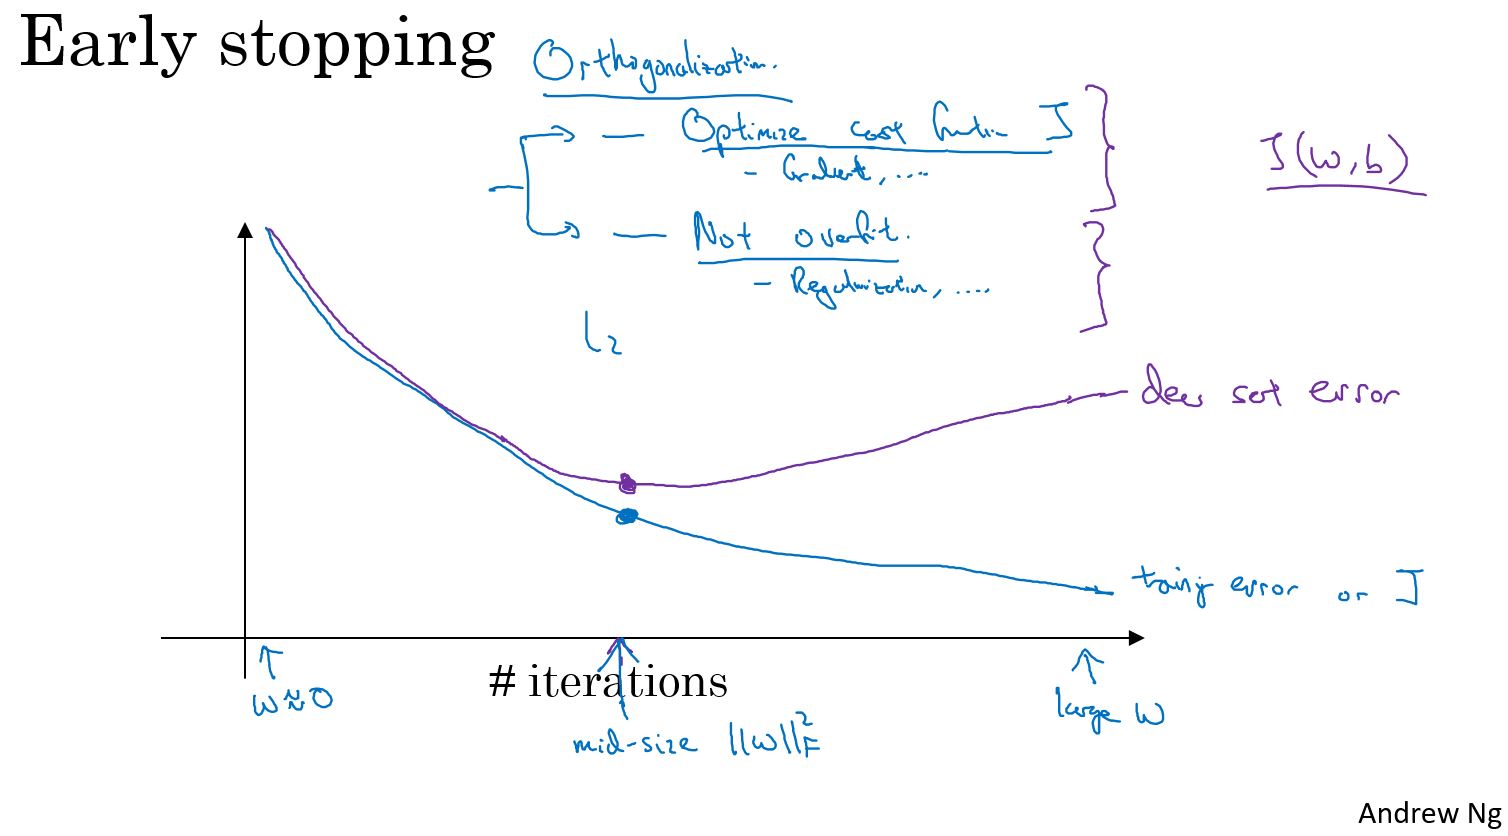 Early stopping
Orthogonalization.
— Optimize cost function J
- Gradient, ....
J(w,b)
— Not overfit.
- Regularization, ....
L2
dev set error
training error or J
# iterations
w≈0
mid-size ||w||²_F
large w
Andrew Ng